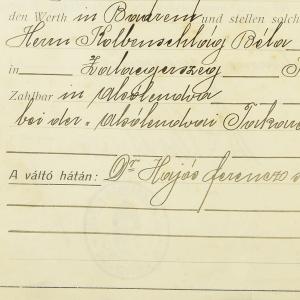 den Werth in Baarem und stellen solch
Herrn Kolbenschlag Béla
in Zalaegerszeg
Zahlbar in Alsólendva
bei der „Alsólendvai Takaré
A váltó hátán: Dr Hajós Ferencz